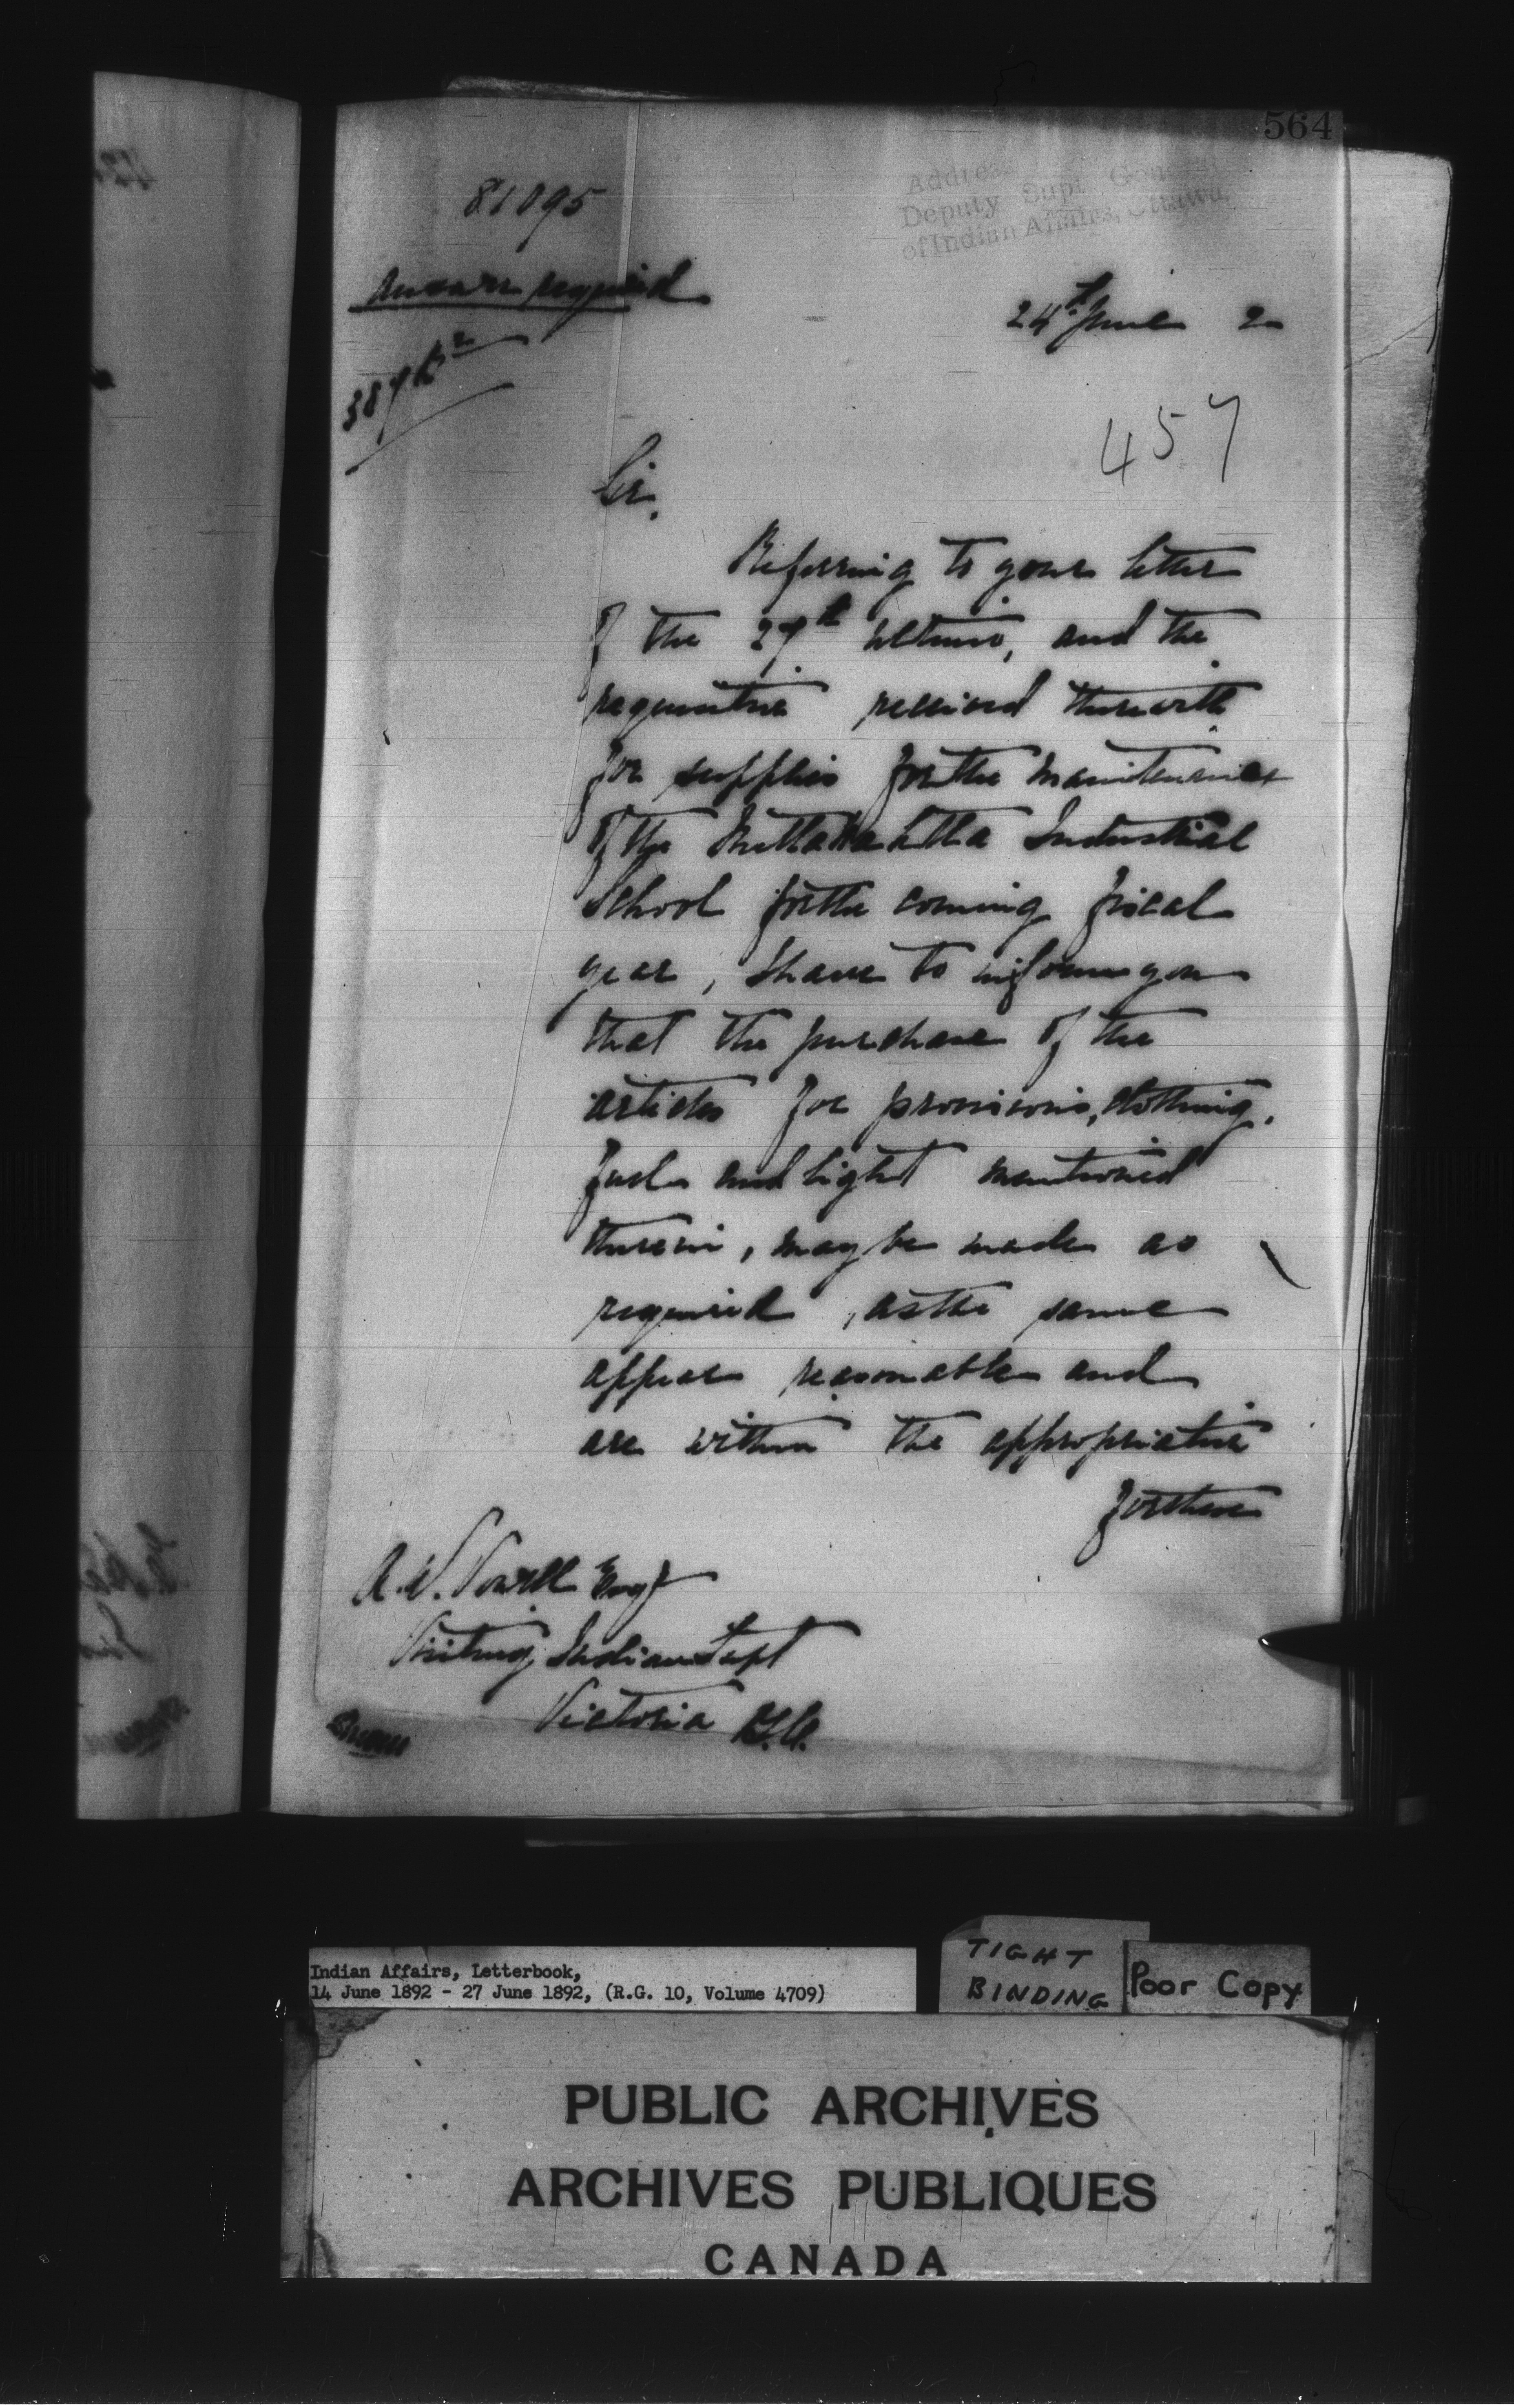 564
81095
Address
Deputy Supt General
of Indian Affairs, Ottawa.
Answer required
24th June 2
457
Sir,
Referring to your letter
of the 27th ultimo, and the
requisition received therewith
for supplies for the maintenance
of the Mettakahtla Industrial
School for the coming fiscal
year, I have to inform you
that the purchase of the
articles for provisions, clothing,
fuel and light mentioned
therein, may be made as
required, as the same
appear reasonable and
are within the appropriation
for these
A.W. Powell Esq
Visiting Indian Supt
Victoria B.C.
Indian Affairs, Letterbook,
14 June 1892 - 27 June 1892, (R.G. 10, Volume 4709)
TIGHT
BINDING
Poor Copy
PUBLIC ARCHIVES
ARCHIVES PUBLIQUES
CANADA